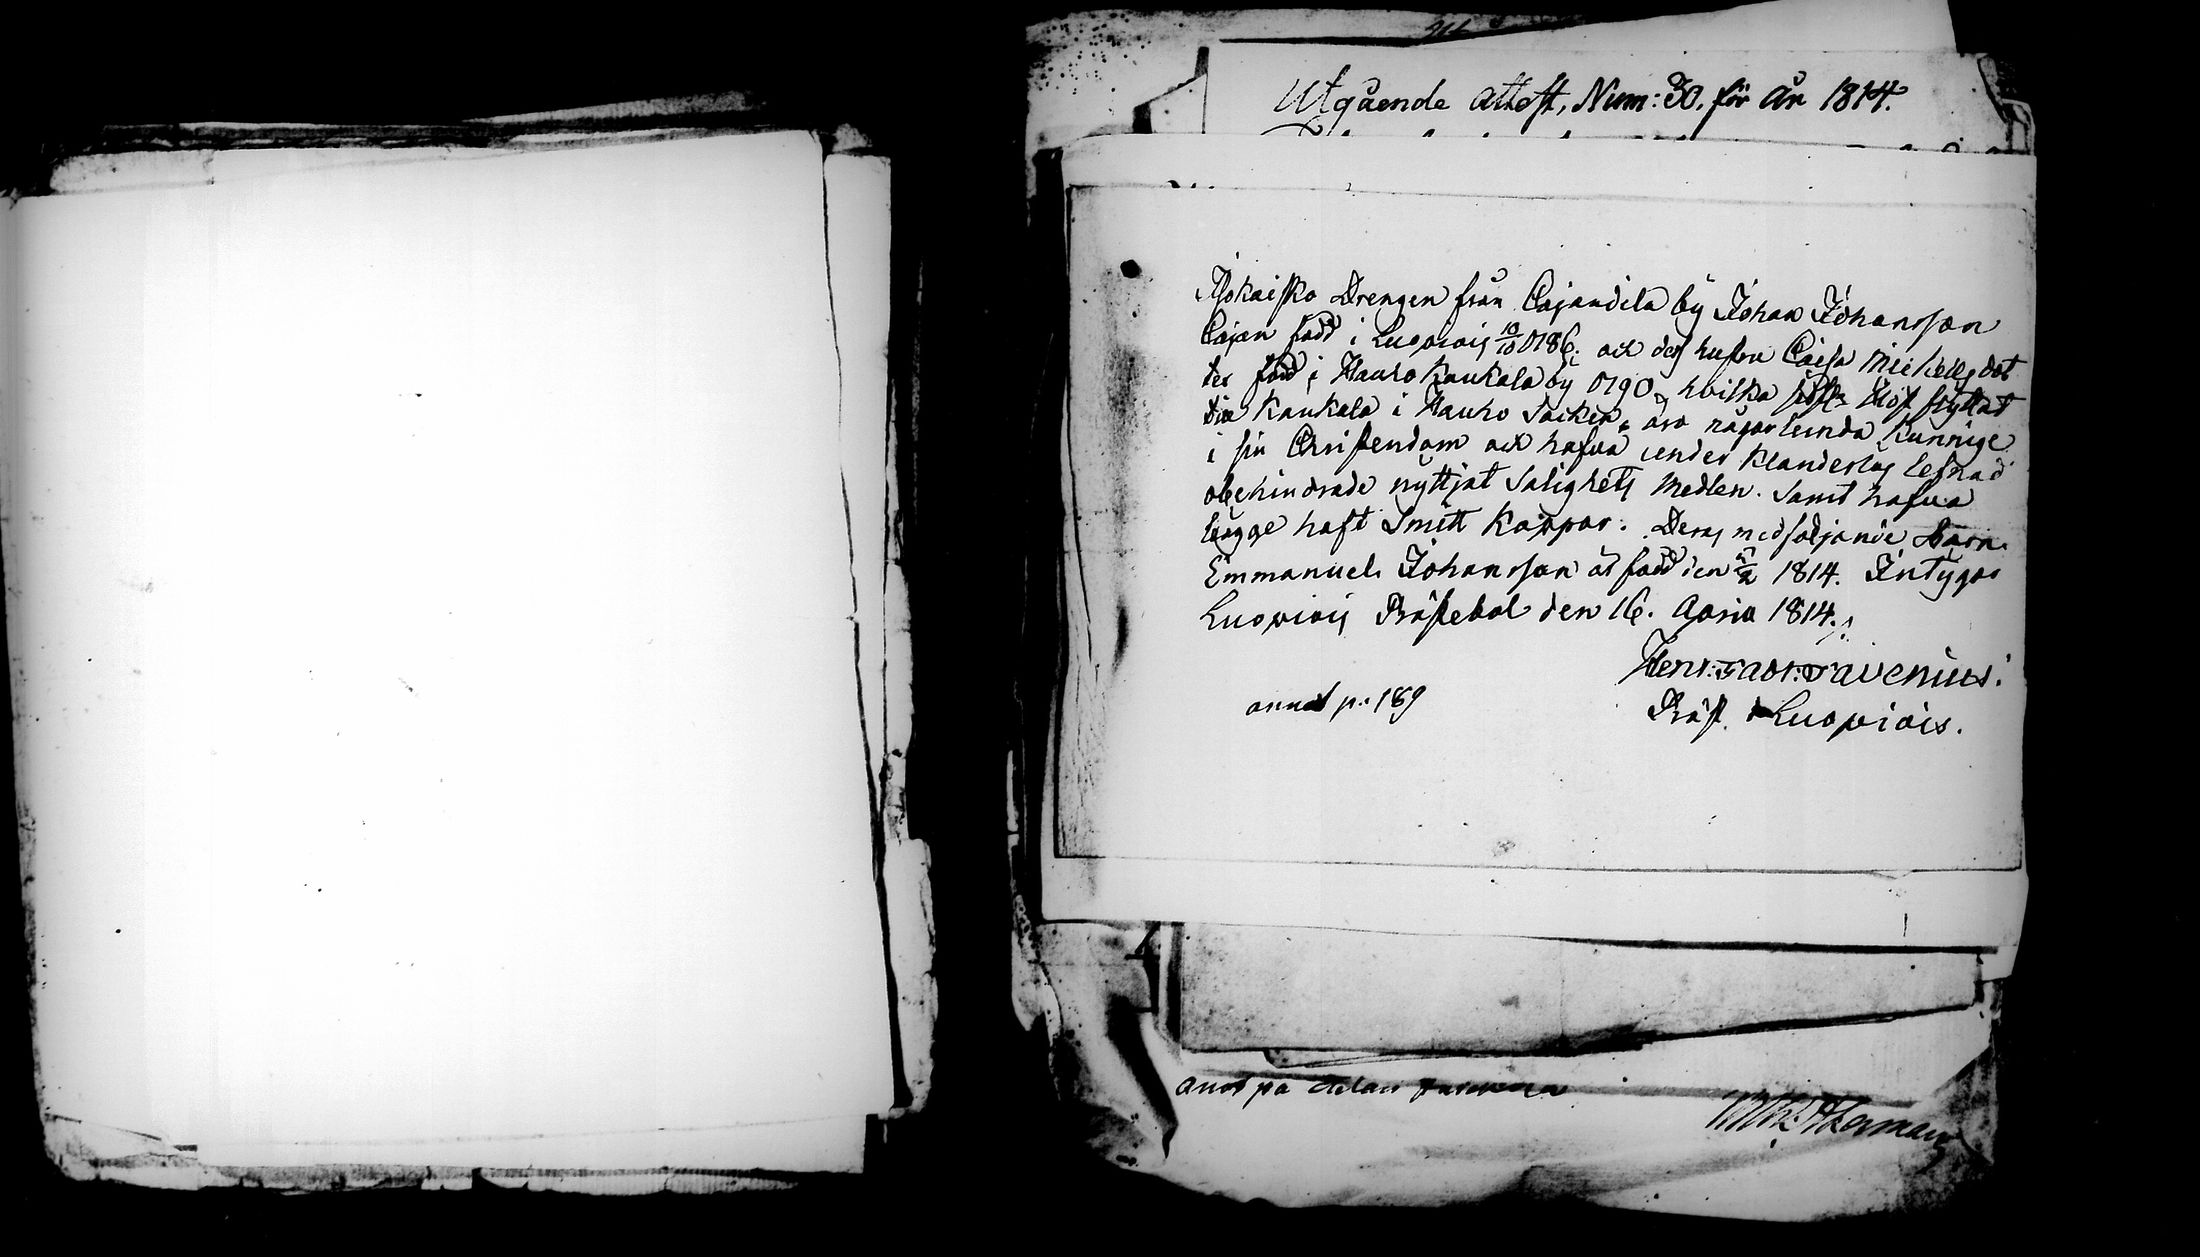 Utgående attest, Num: 30. för år 1814.
Drengen från Cajandila by Johan Johansson
Cajen född i Luopiois 10/10 1786. och des hustru Caisa Mickels dot
ter född i Hauho Kaukala by 1790, hvilka flyttat
Kaukala i Hauho Socken, äro någorlunda Kunnige
i sin Christendom och hafva under Klanderlös lefnad
obehindrade nyttjat Salighets Medlen. Samt hafva
begge haft Smitt Koppor. Deras medföljande Barn
Emmanuel Johansson är född den 1814. Intygar
Luopiois Prästebol den 16. April 1814.
Henr: Favenius.
annot p. 189
Präst. i Luopiois.
annot på